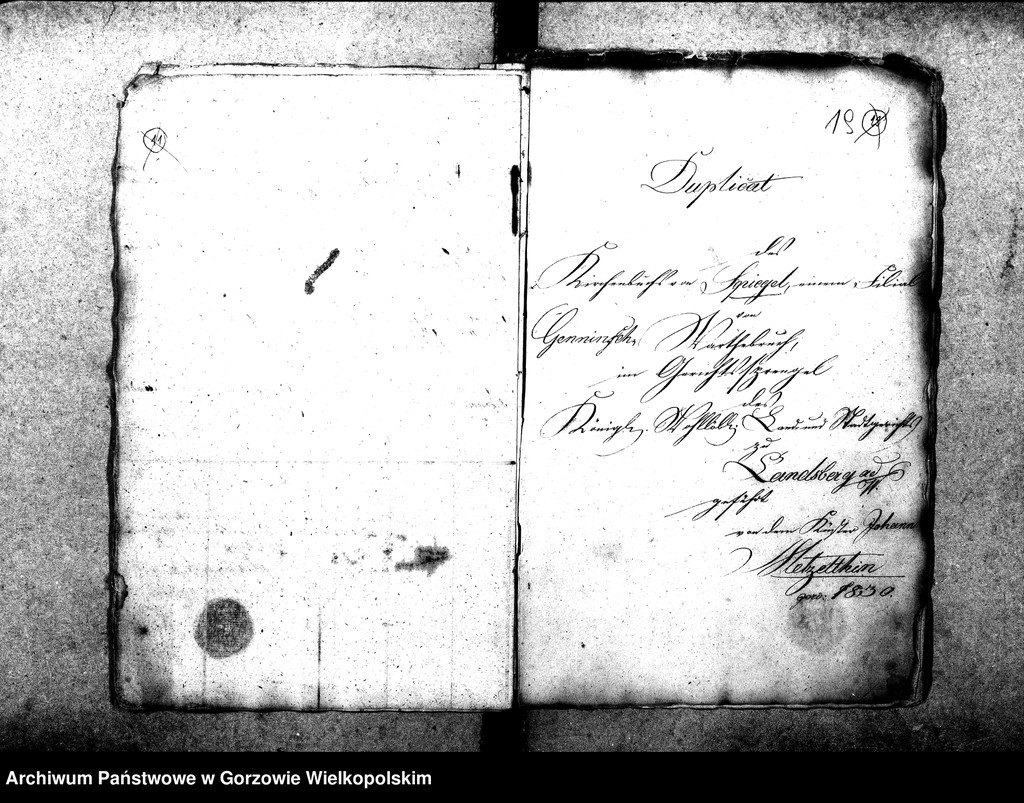 11
19 12
Duplicat
des
Kirchenbuchs von Spiegel, einem Filial
von
Genninsch. Warthebruch,
im Gerichtssprengel
des
Königl. Wohllöbl. Land und Stadtgerichts
zu
Landsberg a/d W
geführt
von dem Küster Johann
pro. 1830.
Archiwum Państwowe w Gorzowie Wielkopolskim